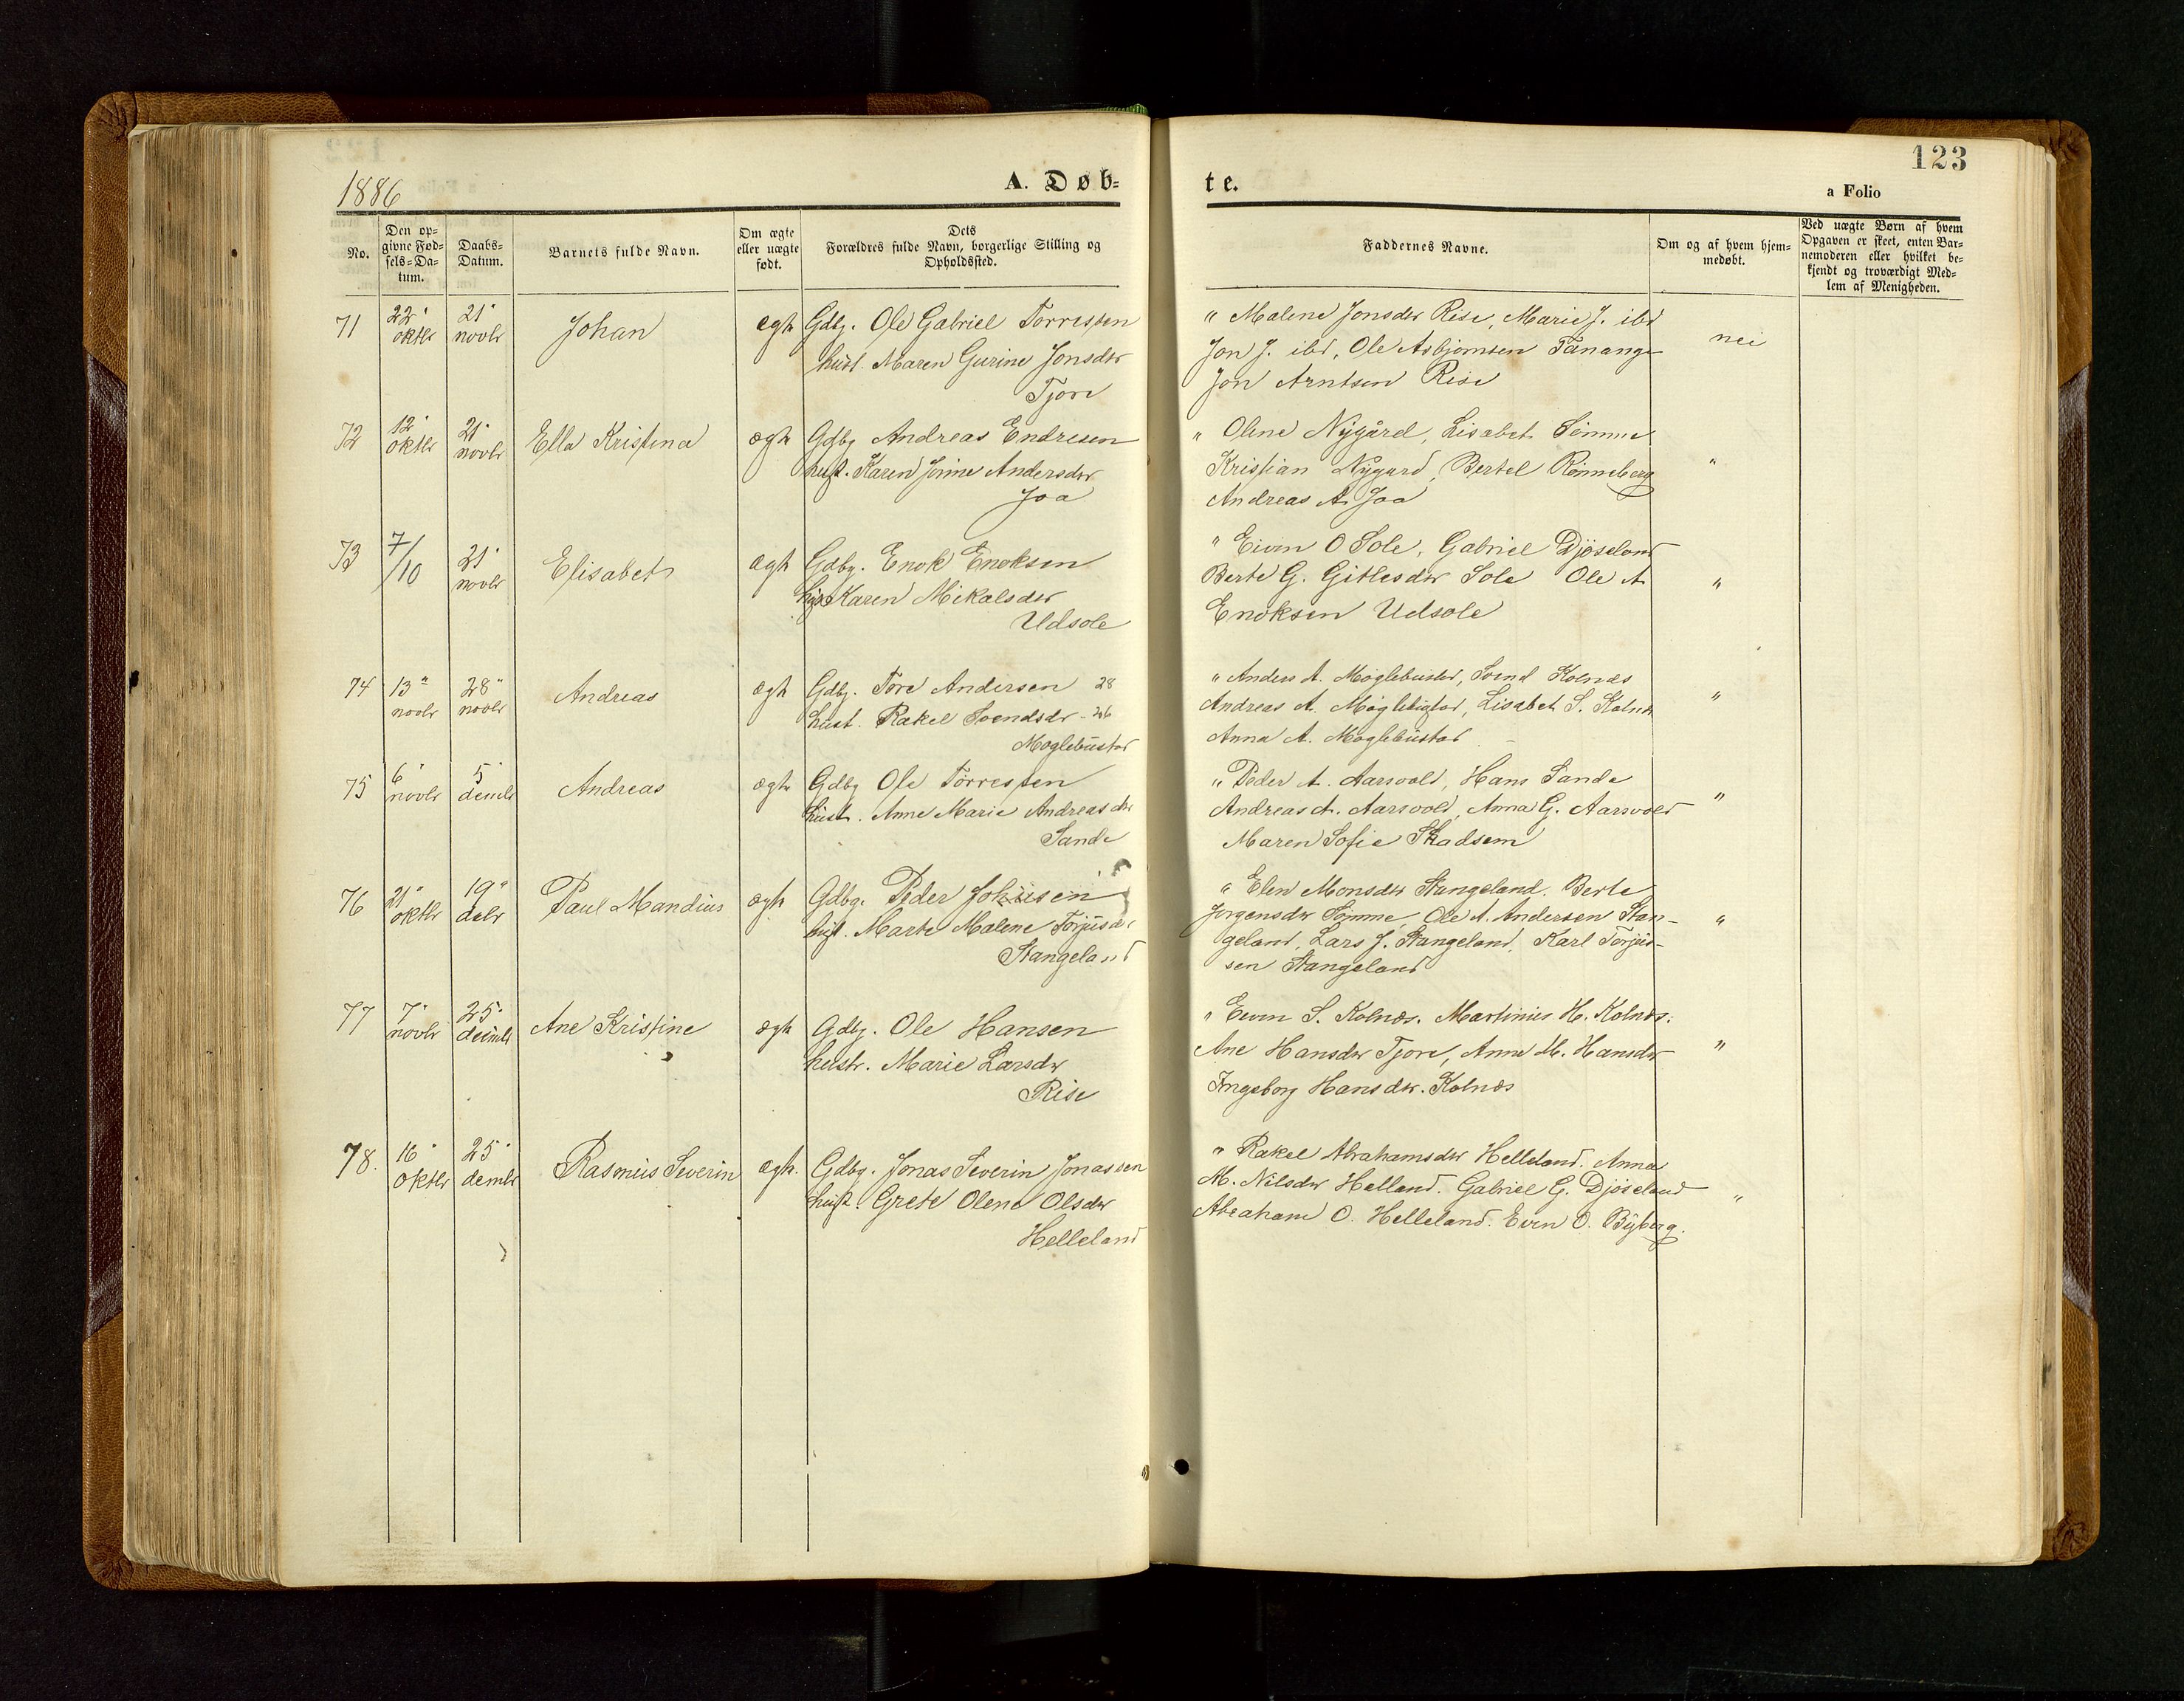 1886
A. Døb-
te.
123
a Folio
No.
Den op-
givne Fød-
sels-Da-
tum.
Daabs-
Datum.
Barnets fulde Navn.
Om ægte
eller uægte
født.
Dets
Forældres fulde Navn, borgerlige Stilling og
Opholdssted.
Faddernes Navne.
Om og af hvem hjem-
medøbt.
Ved uægte Børn af hvem
Opgaven er skeet, enten Bar-
nemoderen eller hvilket be-
kjendt og troværdigt Med-
lem af Menigheden.
71
22
oktbr
21
novbr
Johan
ægte
Gdbg. Ole Gabriel Torressen
hust. Maren Gurine Jonsdtr
Tjore
" Malene Jonsdtr Rise, Marie J. ibd
Jon J. ibd, Ole Asbjørnsen Tananger
Jon Arntsen Rise
nei
72
12
oktbr
21
novbr
Ella Kristina
ægte
Gdbg Andreas Endresen
hust. Karen Jonine Andersdtr
Joa
" Olene Nygård, Lisabet Sømme
Kristian Nygård, Bertel Rønneberg
Andreas A. Joa
"
73
7/10
21
novbr
Elisabet
ægte
Gdbg. Enok Enoksen
hust Karen Mikalsdtr
Udsole
" Eivin O Sole, Gabriel Djøseland
Berte G. Gitlesdtr Sole Ole A
Enoksen Udsole
"
74
13
novbr
28
novbr
Andreas
ægte
Gdbg. Tore Andersen 28
hust. Rakel Svendsdr - 26
Møglebustad
" Anders A. Møglebustad, Svend Kolnæs
Andreas A. Møglebustad, Lisabet S. Kolnæs
Anna A. Møglebustad
"
75
6
novbr
5
dembr
Andreas
ægte
Gdbg Ole Torressen
hust. Anne Marie Andreasdtr
Sande
" Peder A. Aarsvold, Hans Sande
Andreas A. Aarsvold, Anna G. Aarsvold
Maren Sofie Skadsem
"
76
21
oktbr
19
debr
Paul Mandius
ægte
Gdbg. Peder Johnsen
hust. Marte Malene Torjusdtr
Stangeland
" Elen Monsdtr Stangeland. Berte
Jørgensdtr Sømme, Ole A. Andersen Stan-
geland, Lars J. Stangeland, Karl Torjus-
sen Stangeland
"
77
7
novbr
25
deembr
Ane Kristine
ægte
Gdbg. Ole Hansen
hustr. Marie Larsdtr
Rise
" Eivin S. Kolnæs. Martinius H. Kolnæs.
Ane Hansdtr Tjore, Anne M. Hansdtr
Ingeborg Hansdtr. Kolnæs
"
78.
16
oktbr
25
dembr
Rasmus Severin
ægte.
Gdbg. Jonas Severin Jonassen
hust. Grete Olene Olsdtr
Helleland
" Rakel Abrahamsdtr Helleland. Anna
M. Nilsdtr Helland. Gabriel G. Djøseland
Abraham O. Helleland. Evin O. Byberg.
"